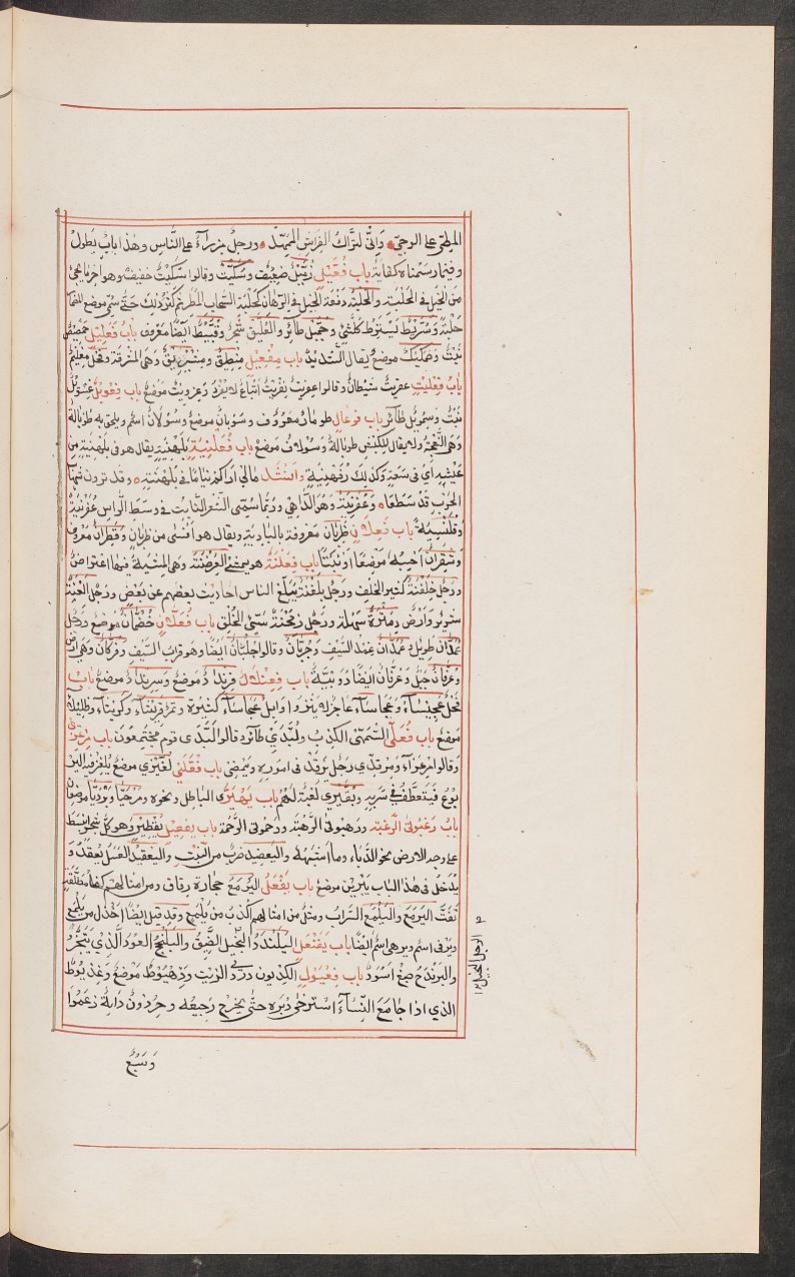 المطيّ على الوجيّ واني لتراك الفراش الممهد ورجل مزراء على الناس وهذا باب يطول
وفيما رسمناه كفاية باب فُعَّيْلٍ زُمَّيْلٌ ضعيف وسُكَّيْتٌ وقالوا سُكَيْتٌ خفيفة وهو اخر ما يجئ
من الخيل في الحلبة والحلبة دفعة الخيل في الرهان كحلبة السحاب المطر ثم كثر ذلك حتى سمى موضع للقما
حلبة وسُرَّيْط وجُمَّيْل طائر والعُلَّيْق شجر وقُبَّيْط ايضا معروف باب فَعَلِيْلٍ حمصيص
نبت وهكيك موضع يقال التشديد باب مِفْعِيْلٍ منطيق ومنشريق وهي المشرقة وفحل مغليم
باب فِعْلِيْتٍ عفريت شيطان وقالوا عفريت نفريت اتباع لا يفرد وعزويت موضع باب فِعْوِيْلٍ غسويل
نبت وسمويل طائر باب فوعال طومار معروف وسوبان موضع وسولان اسم ويلحق به طوبالة
وهي النعجة ولا يقال للكبش طوبال وسولاف موضع باب فُعَلْنِيَةٍ بلهنية يقال هو في بلهنية من
عيشه اي في سعة وكذلك رفهنية وانشد مالي اراكم نياما في بلهنية وقد ترون شهاب
الحرب قد سطعا وعفرنية وهو الداهي وربما سمى الشعر النابت في وسط الراس عفرنية
وقلنسية باب فَعِلان ظربان معروفة بالبادية ويقال هو افسى من ظربان وقطران معروف
وشقران احسبه موضعا او نبتا باب فِعَلْنَةٌ هو يمشي العرضنة وهي المشية فيها اعتراض
ورجل خلفنة كثير الخلف ورجل بلغنة يبلغ الناس احاديث بعضهم عن بعض ورجل
وارض دمثرة سهلة ورجل زمحنة سئ الخلق باب فُعُلّان خضمان موضع ورجل
عمدان طويل وغمدان عمد السيف وجربان وقالوا جلبان ايضا وهو قراب السيف وفركان وهي ارض
وعرفان جبل وعرفان ايضا دويبة باب فِعِنْلال فرنداد موضع وسرنداد موضع باب
فحل عجيساء وعجاساء عاجز لا ينزو وابل عجاساء كثيرة وتمر قريثاء وكريثاء وظليلاء
موضع باب فُعَّلَى السمهى الكذب ولبدي طائر وقالوا لبدى قوم مجتمعون باب
وقالوا مرعزاء ومرقدي رجل يرقد في اموره ويمضى باب فُعَّيْلَى لغيزي موضع يلغز فيه اليربوع
فيتعطف في سربه وبقيرى لعبة لهم باب يَهْيَرَّى الباطل ونحوه ومرحيا وبرديا موضعان
باب رغبوتى الرغبة ورهبوتى الرهبة ورحموتى الرحمة باب يفعيل يقطين وهو كل شجر انبسط
على وجه الارض نحو الدباء وما اشبهه واليعضيد ضرب من النبت واليعقيد العسل يعقد و
يدخل في هذا الباب يبرين موضع باب يَفْعَلُ اليرمع حجارة رقاق ومن امثالهم كفا مطلقة
تفت اليرمع واليلمع السراب ومثل من امثالهم اكذب من يلمع وقد قيل ايضا اخذل من يلمع
ويرفى اسم ويرهى اسم ايضا باب يَفَنْعَل اليلندد البخيل الضيق واليلنجج العود الذي يتبخر
واليرندج صبغ اسود باب فِعْيَوْل الكديون دردي الزيت وذهيوط موضع وعذيوط
الذي اذا جامع النساء استرخى دبره حتى يخرج رجيعه وحرذون دابة زعموا
وتسبع